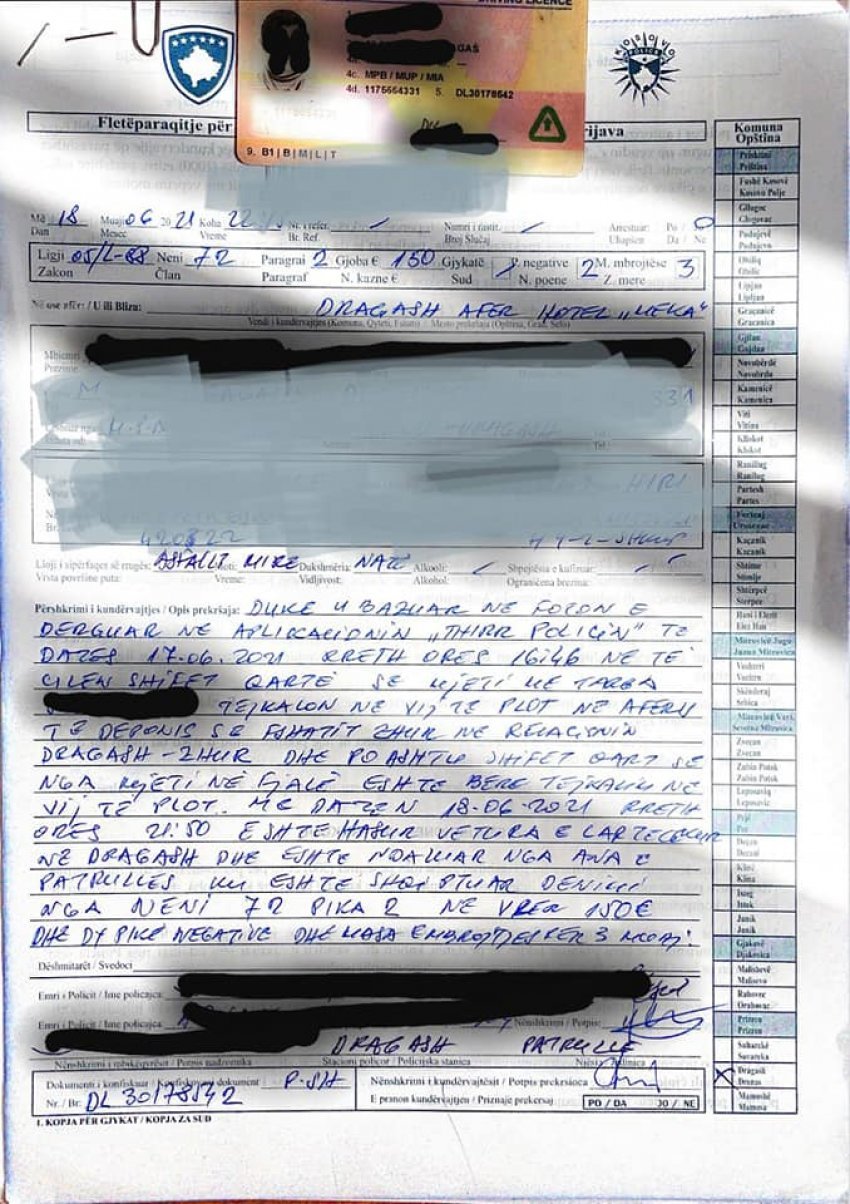 DRIVING LICENCE
GAŠ
4c. MPB / MUP / MIA
4d. 1175664331 5. DL30178542
9. B1 | B | M | L | T
KOSOVO POLICE
Fletëparaqitje për
rijava
Komuna
Opština
18 Muaji 06 20 21 Koha
Dan Mesec Vreme
Nr. i refer.
Br. Ref.
Numri i fastit.
Broj Slučaj
Arrestuar: Po / Jo
Uhapšen Da / Ne
Ligji 05/L-88 Neni 72 Paragrai 2 Gjoba € 150 Gjykatë P. negative 2 M. mbrojtëse 3
Zakon Član Paragraf N. kazne € Sud N. poene Z. mere
Në ose afër: / U ili Bliza: DRAGASH AFER HOTEL „MEKA"
Vendi i kundërvajtjes (Komuna, Qyteti, Fshati) / Mesto prekršaja (Opština, Grad, Selo)
Mbiemri
Prezime
331
DRAGASH
HIRI
420822
Lloji i sipërfaqes së rrugës: ASFALLT MIRE Dukshmëria: NATE Alkooli: Shpejtësia e kufizuar:
Vrsta površine puta: Vreme: Vidljivost: Alkohol: Ograničena brzina:
Përshkrimi i kundërvajtjes / Opis prekršaja: DUKE U BAZUAR NE FOTON E
DERGUAR NE APLIKACIONIN „THIRR POLICIN" TE
DATES 17.06.2021 RRETH ORES 16:46 NE TË
CILEN SHIFET QARTË SE MJETI ME TARGA
TEJKALON NE VIJ TE PLOT NE AFERSI
TË DEPONIS SE FSHATIT ZHUR NE RELACIONIN
DRAGASH - ZHUR DHE PO ASHTU SHIFET QART SE
NGA MJETI NE FJALË ESHTE BERE TEJKALIM NE
VIJ TË PLOT. ME DATEN 18-06-2021 RRETH
ORES 21:50 ESHTE HASUR VETURA E LARTECEKUR
NË DRAGASH DHE ESHTE NDALUAR NGA ANA E
PATRULLES KU ESHTE SHQIPTUAR DENIMI
NGA NENI 72 PIKA 2 NE VRER 150€
DHE DY PIKË NEGATIVE DHE MASA EMBROJTJES PER 3 MUAJ.
Dëshmitarët / Svedoci
Emri i Policit / Ime policajca:
Emri i Policit / Ime policajca: Nënshkrimi / Potpis:
DRAGASH PATRULLE
Nënshkrimi i mbikëqyrësit / Potpis nadzornika Stacioni policor / Policijska stanica
Dokumenti i konfiskuar / Konfiskovani dokument P.SH
Nr. / Br: DL 30178542
Nënshkrimi i kundërvajtësit / Potpis prekršioca
E pranon kundërvajtjen / Priznaje prekršaj PO / DA JO / NE
1. KOPJA PËR GJYKAT / KOPJA ZA SUD
Prishtinë
Priština
Fushë Kosovë
Kosovo Polje
Gllogoc
Glogovac
Podujevë
Podujevo
Obiliq
Obilić
Lipjan
Lipljan
Graçanicë
Gracanica
Gjilan
Gnjilane
Novobërdë
Novobrdo
Kamenicë
Kamenica
Viti
Vitina
Kllokot
Klokot
Ranillug
Ranilug
Partesh
Parteš
Ferizaj
Uroševac
Kaçanik
Kačanik
Shtime
Štimlje
Shtërpcë
Štrpce
Hani i Elezit
Elez Han
Mitrovicë Jugu
Južna Mitrovica
Vushtrri
Vučitrn
Skënderaj
Srbica
Mitrovicë Veri.
Severna Mitrovica
Zveçan
Zvečan
Zubin Potok
Zubin Potok
Leposaviq
Leposavić
Pejë
Peć
Deçan
Dečani
Klinë
Klina
Istog
Istok
Junik
Junik
Gjakovë
Djakovica
Malishevë
Mališevo
Rahovec
Orahovac
Prizren
Prizren
Suharekë
Suvareka
Dragash
Dragaš
Mamushë
Mamuša